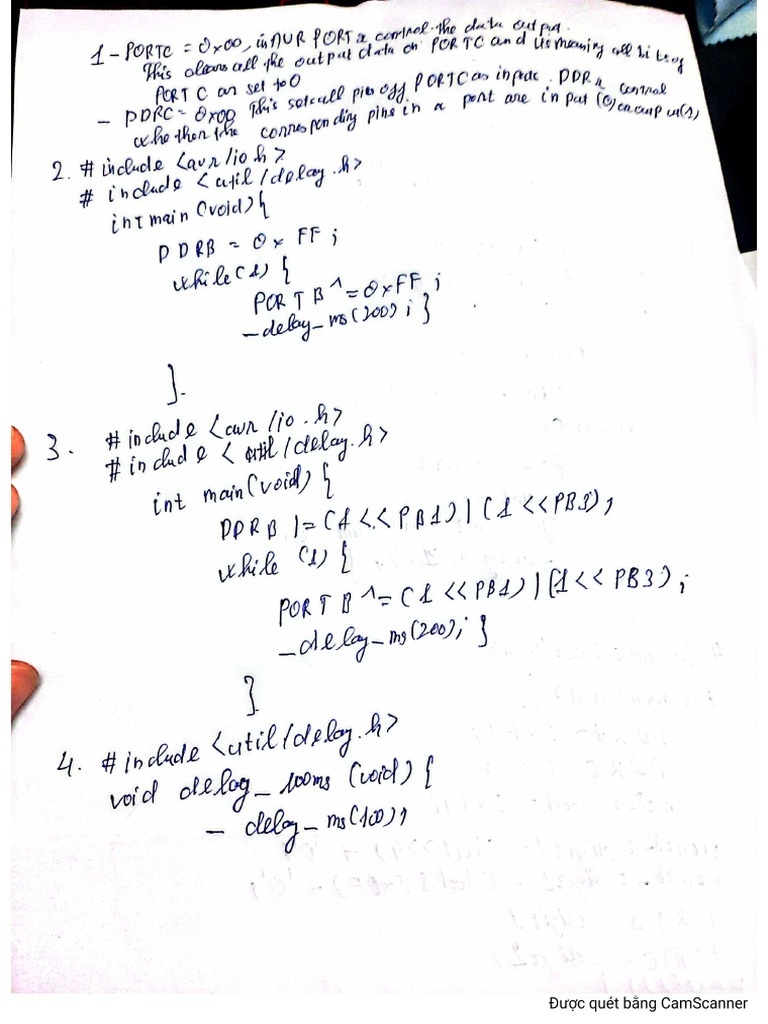 1 - PORTC = 0x00, in AVR PORTx control the data output.
This clears all the output data on PORTC and its meaning all bits of
PORTC are set to 0
- DDRC = 0x00 This sets all pins off PORTC as input. DDRx control
whether the corresponding pins in a port are input (0) or output (1)
2. #include <avr/io.h>
# include <util/delay.h>
int main (void) {
DDRB = 0x FF ;
while (1) {
PORTB ^= 0xFF ;
_delay_ms(200) ; }
}.
3. #include <avr/io.h>
#include < util/delay.h>
int main(void) {
DDRB |= (1 << PB1) | (1 <<PB3),
while (1) {
PORTB ^= (1 <<PB1) | (1<< PB3) ;
_delay_ms(200) ; }
}
4. #include <util/delay.h>
void delay_100ms (void) {
_ delay_ms(100),
Được quét bằng CamScanner